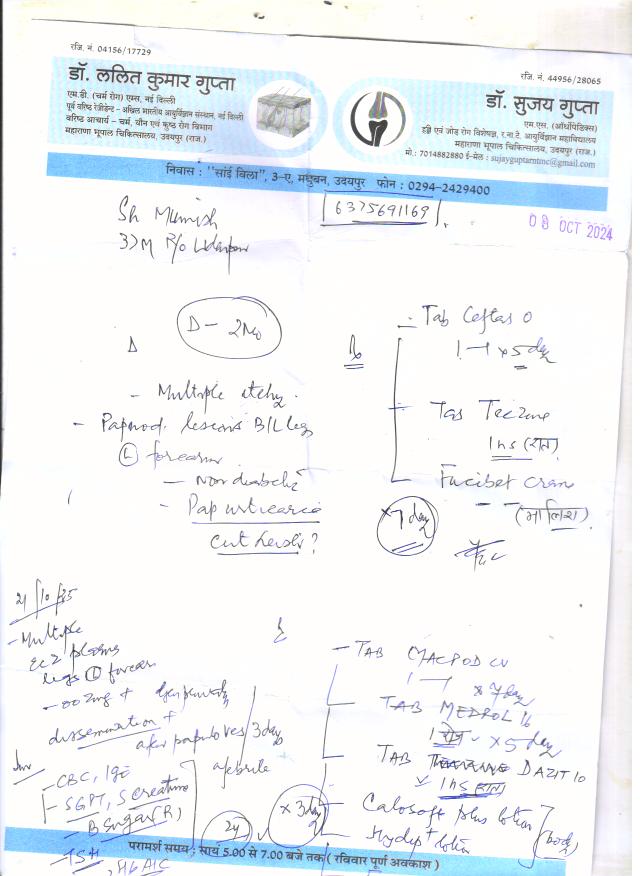 रजि. नं. 04156/17729
डॉ. ललित कुमार गुप्ता
एम.डी. (चर्म रोग) एम्स, नई दिल्ली
पूर्व वरिष्ठ रेजीडेन्ट - अखिल भारतीय आयुर्विज्ञान संस्थान, नई दिल्ली
वरिष्ठ आचार्य - चर्म, यौन एवं कुष्ठ रोग विभाग
महाराणा भूपाल चिकित्सालय, उदयपुर (राज.)
रजि. नं. 44956/28065
डॉ. सुजय गुप्ता
एम.एस. (ऑर्थोपेडिक्स)
हड्डी एवं जोड़ रोग विशेषज्ञ, र.ना.टे. आयुर्विज्ञान महाविद्यालय
महाराणा भूपाल चिकित्सालय, उदयपुर (राज.)
मो.: 7014882880 ई-मेल : sujayguptarntmc@gmail.com
निवास : "सांई विला", 3-ए, मधुबन, उदयपुर फोन : 0294-2429400
6375691169
08 OCT 2024
Sh Munish
37 M R/o Udaipur
D - 2
- Multiple itchy
- lesions B/L legs
(L) forearm
- Non diabetic
- Pap urticaria
Rx
Tab Ceftas O
1 - 1 x 5 day
Tab Teczine
1 hs (रात)
Fucibet cream
(मालिश)
x 7 day
21/10/25
- Multiple
legs (L) forearm
- oozing +
dissemination +
after papules / 3 days
afebrile
Inv
- CBC, IgE
- SGPT, S creatinine
- B Sugar (R)
- TSH, HbA1C
- TAB MACPOD CV
1 - 1 x 7 day
TAB MEDROL 16
1 रोज x 5 day
TAB DAZIT 10
1 hs रात
x 3 day
Calosoft plus lotion
lotion
(body)
परामर्श समय : सायं 5.00 से 7.00 बजे तक ( रविवार पूर्ण अवकाश )